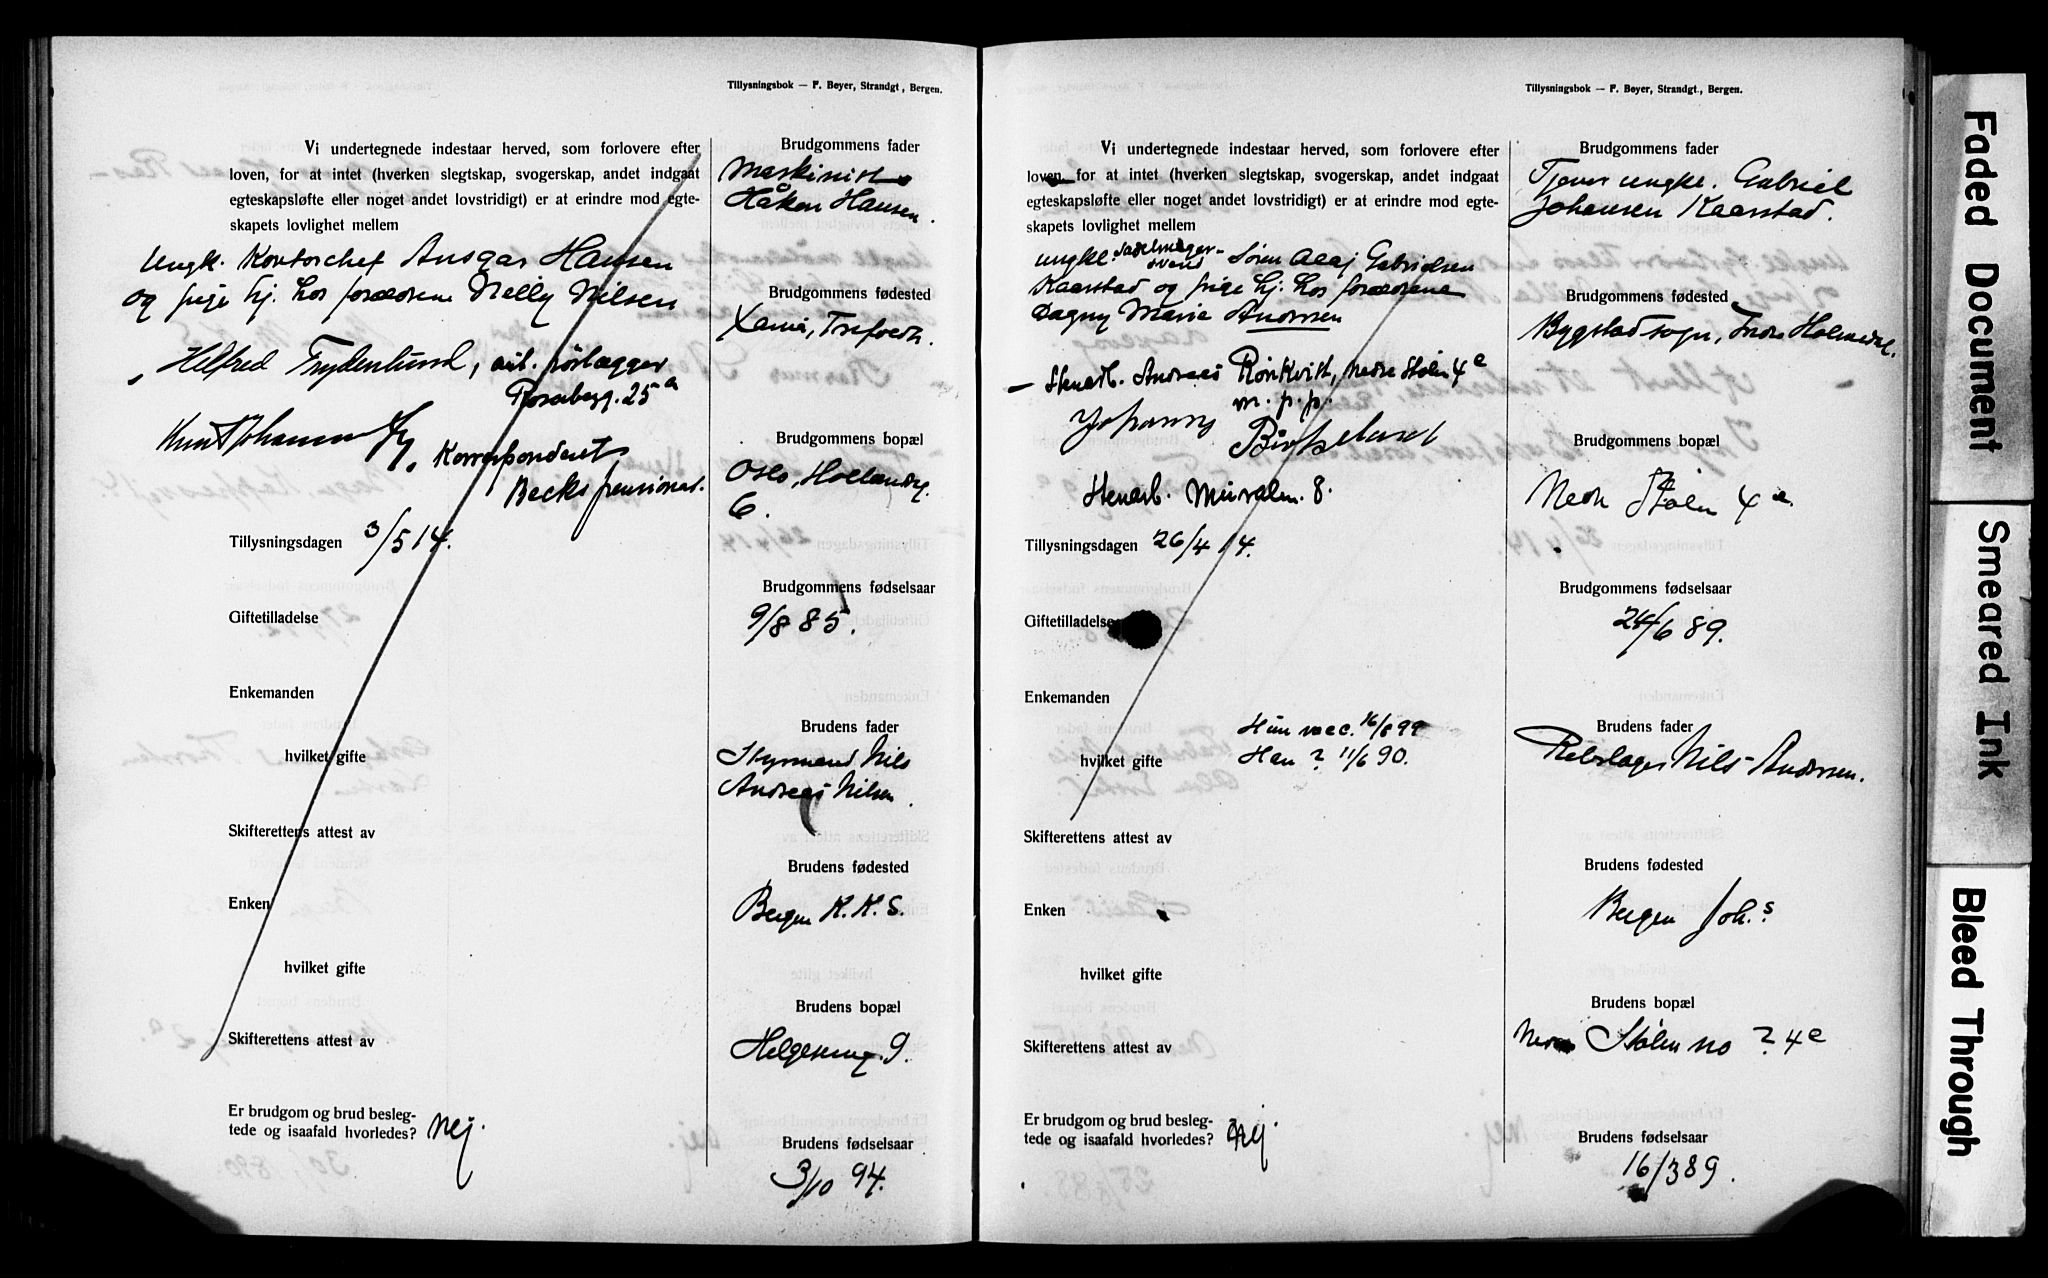 Tillysningsbok — F. Beyer, Strandgt., Bergen.
Vi undertegnede indestaar herved, som forlovere efter
loven, for at intet (hverken slegtskap, svogerskap, andet indgaat
egteskapsløfte eller noget andet lovstridigt) er at erindre mod egte-
skapets lovlighet mellem
Ungk. Kontorchef Ansgar Hansen
og pige hj. hos forældrene Nelly Nilsen
Helfred Frydenlund, aut. rørlægger
Rosenbergg. 25a
Knut Johannes
Korrespondent
Becks pensionat.
Tillysningsdagen 3/5 14.
Giftetilladelse
Enkemanden
hvilket gifte
Skifterettens attest av
Enken
hvilket gifte
Skifterettens attest av
Er brudgom og brud besleg-
tede og isaafald hvorledes? Nej.
Brudgommens fader
Maskinist
Håkon Hansen.
Brudgommens fødested
Brudgommens bopæl
Oslo, Hollændg.
6.
Brudgommens fødselsaar
9/8 85.
Brudens fader
Styrmand Nils
Andreas Nilsen.
Brudens fødested
Bergen K. K. S.
Brudens bopæl
Helgesensg. 9.
Brudens fødselsaar
3/10 94.
Tillysningsbok — F. Beyer, Strandgt., Bergen.
Vi undertegnede indestaar herved, som forlovere efter
loven, for at intet (hverken slegtskap, svogerskap, andet indgaat
egteskapsløfte eller noget andet lovstridigt) er at erindre mod egte-
skapets lovlighet mellem
ungkl. sadelmager-
svend Søren Olaj Gabrielsen
Kaarstad og pige hj. hos forældrene
Dagny Marie Andersen
Stenarb. Andreas Rönkvist, Nedre Stølen 4e
m. p. p.
Johannes Birkeland
Stenarb. Muralm. 8.
Tillysningsdagen 26/4 14.
Giftetilladelse
Enkemanden
Hun vacc. 16/8 99
hvilket gifte Han ? 11/6 90.
Skifterettens attest av
Enken
hvilket gifte
Skifterettens attest av
Er brudgom og brud besleg-
tede og isaafald hvorledes? Nej
Brudgommens fader
Tjener ungkl. Gabriel
Johansen Kaarstad.
Brudgommens fødested
Bygstad sogn, Indre Holmedal.
Brudgommens bopæl
Nedre Stølen 4e
Brudgommens fødselsaar
24/6 89.
Brudens fader
Rebslager Nils Andersen.
Brudens fødested
Bergen Joh.s
Brudens bopæl
Nedre Stølen no ? 4e
Brudens fødselsaar
16/3 89.
Faded Document
Smeared Ink
Bleed Through